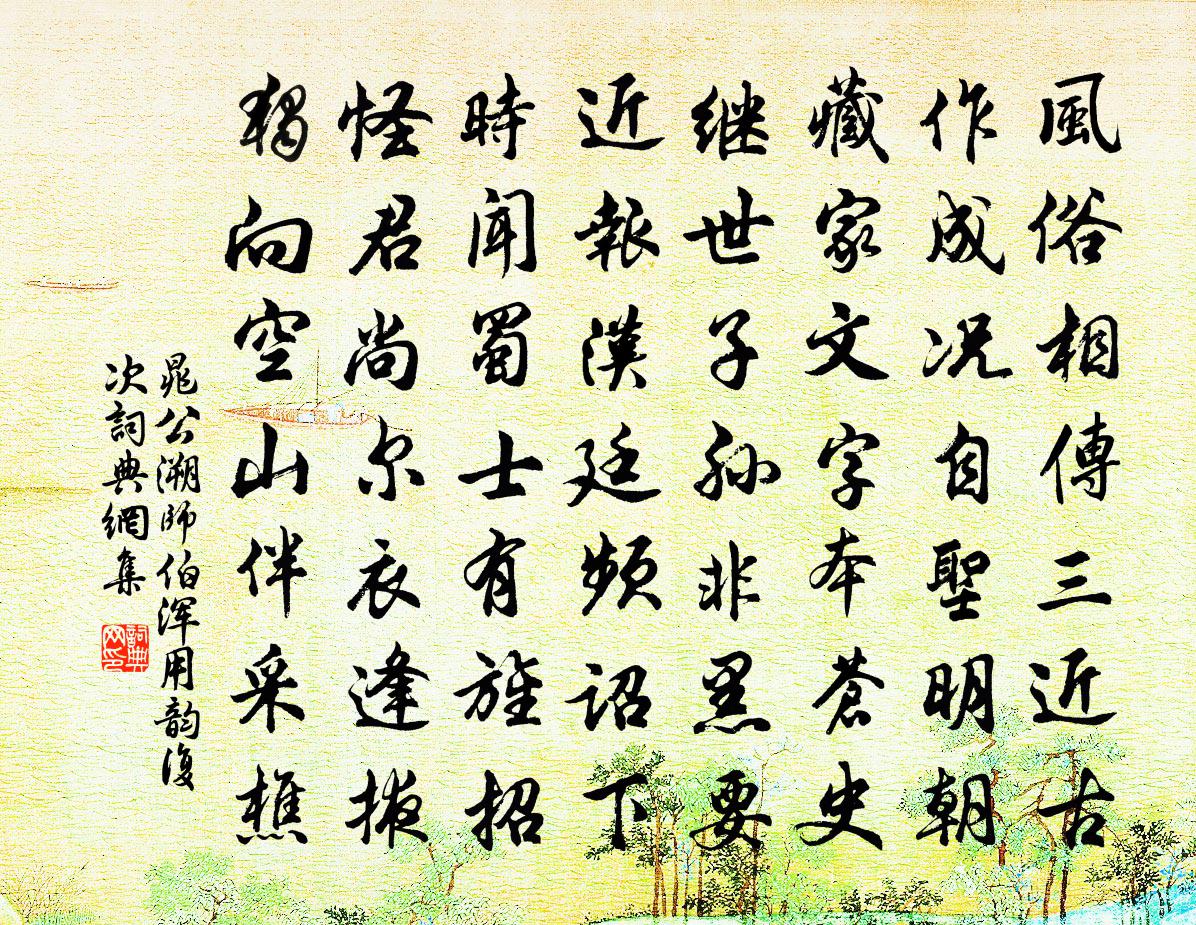 風俗相傳三近古
作成况自聖明朝
藏家文字本蒼史
继世子孙非黑要
近報漢廷頻詔下
時闻蜀士有旌招
怪君尚尔衣逢掖
獨向空山伴采樵
晁公溯師伯浑用韵復
次詞典網集
詞典
网印